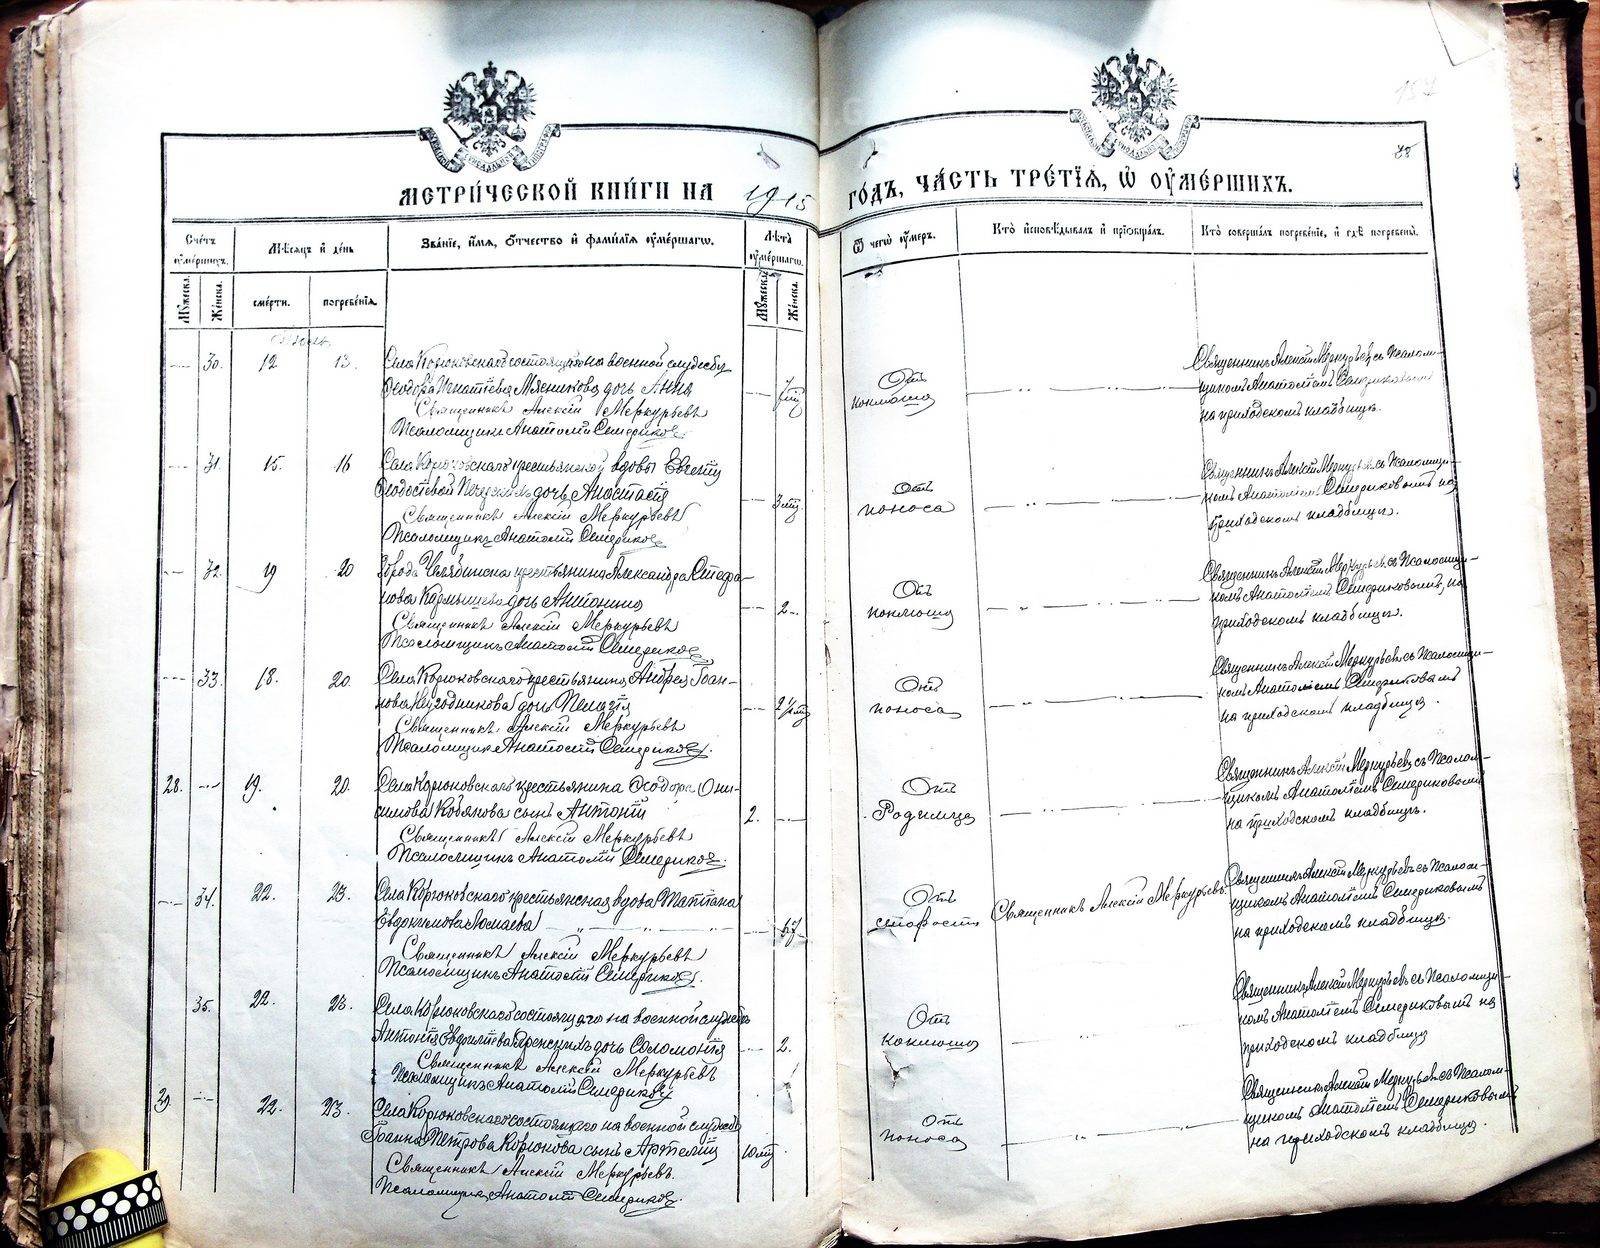 МЕТРИ́ЧЕСКОЙ КНИ́ГИ НА 1915 ГО́ДЪ, ЧА́СТЬ ТРЕ́ТІѦ, Ѡ ОУМЕ́РШИХЪ.
Сче́тъ оуме́ршихъ.
Мѣ́сѧцъ и҆ де́нь
Зва́нїе, и҆́мѧ, ѻ҆́тчество и҆ фами́лїѧ оуме́ршагѡ.
Лѣ́та оуме́ршагѡ.
Ѿ чегѡ̀ оу́меръ.
Кто̀ и҆сповѣ́дывалъ и҆ прїѡбща́лъ.
Кто̀ соверша́лъ погребе́нїе, и҆ гдѣ̀ погребены̀.
Мꙋ́жеска.
Же́нска.
сме́рти.
погребе́нїѧ
Мꙋ́жеска.
Же́нска.
30. 12 13.
Села Корюковскаго состоящаго на военной службѣ
Ѳеодора Игнатіева Мясникова дочь Анна
Священникъ Алексій Меркурьевъ
Псаломщикъ Анатолій Семериковъ
Отъ
коклюша
Священникъ Алексій Меркурьевъ съ Псалом-
щикомъ Анатоліемъ Семериковымъ
на приходскомъ кладбищѣ.
31. 15. 16
Села Корюковскаго крестьянской вдовы Евгеніи
дочь Анастасія
Священникъ Алексій Меркурьевъ
Псаломщикъ Анатолій Семериковъ
3 мц.
Отъ
поноса
Священникъ Алексій Меркурьевъ съ Псаломщи-
комъ Анатоліемъ Семериковымъ на
приходскомъ кладбищѣ.
32. 19 20
Города Челябинска крестьянина Александра Стефа-
нова Кормышева дочь Антонина
Священникъ Алексій Меркурьевъ
Псаломщикъ Анатолій Семериковъ
2.
Отъ
коклюша
Священникъ Алексій Меркурьевъ съ Псаломщи-
комъ Анатоліемъ Семериковымъ, на
приходскомъ кладбищѣ.
33. 18. 20.
Села Корюковскаго крестьянина Андрея Іоан-
нова Негодникова дочь Пелагія
Священникъ Алексій Меркурьевъ
Псаломщикъ Анатолій Семериковъ.
Отъ
поноса
Священникъ Алексій Меркурьевъ съ Псаломщи-
комъ Анатоліемъ Семериковымъ
на приходскомъ кладбищѣ.
28. 19. 20.
Села Корюковскаго крестьянина Ѳеодора Они-
симова Кобякова сынъ Антоній
Священникъ Алексій Меркурьевъ
Псаломщикъ Анатолій Семериковъ.
2.
Отъ
Родимца
Священникъ Алексій Меркурьевъ съ Псалом-
щикомъ Анатоліемъ Семериковымъ
на приходскомъ кладбищѣ.
34. 22. 23.
Села Корюковскаго крестьянская вдова Татіана
Евдокимова
Священникъ Алексій Меркурьевъ
Псаломщикъ Анатолій Семериковъ.
Отъ
старости
Священникъ Алексій Меркурьевъ
Священникъ Алексій Меркурьевъ съ Псалом-
щикомъ Анатоліемъ Семериковымъ
на приходскомъ кладбищѣ.
35. 22. 23.
Села Корюковскаго состоящаго на военной службѣ
Антонія дочь Соломонія
Священникъ Алексій Меркурьевъ
Псаломщикъ Анатолій Семериковъ
2.
Отъ
коклюша
Священникъ Алексій Меркурьевъ съ Псаломщи-
комъ Анатоліемъ Семериковымъ на
приходскомъ кладбищѣ
29. 22. 23.
Села Корюковскаго состоящаго на военной службѣ
Іоанна Петрова Корюкова сынъ Артемій
Священникъ Алексій Меркурьевъ.
Псаломщикъ Анатолій Семериковъ.
10 мц
Отъ
поноса
Священникъ Алексій Меркурьевъ съ Псалом-
щикомъ Анатоліемъ Семериковымъ
на приходскомъ кладбищѣ.